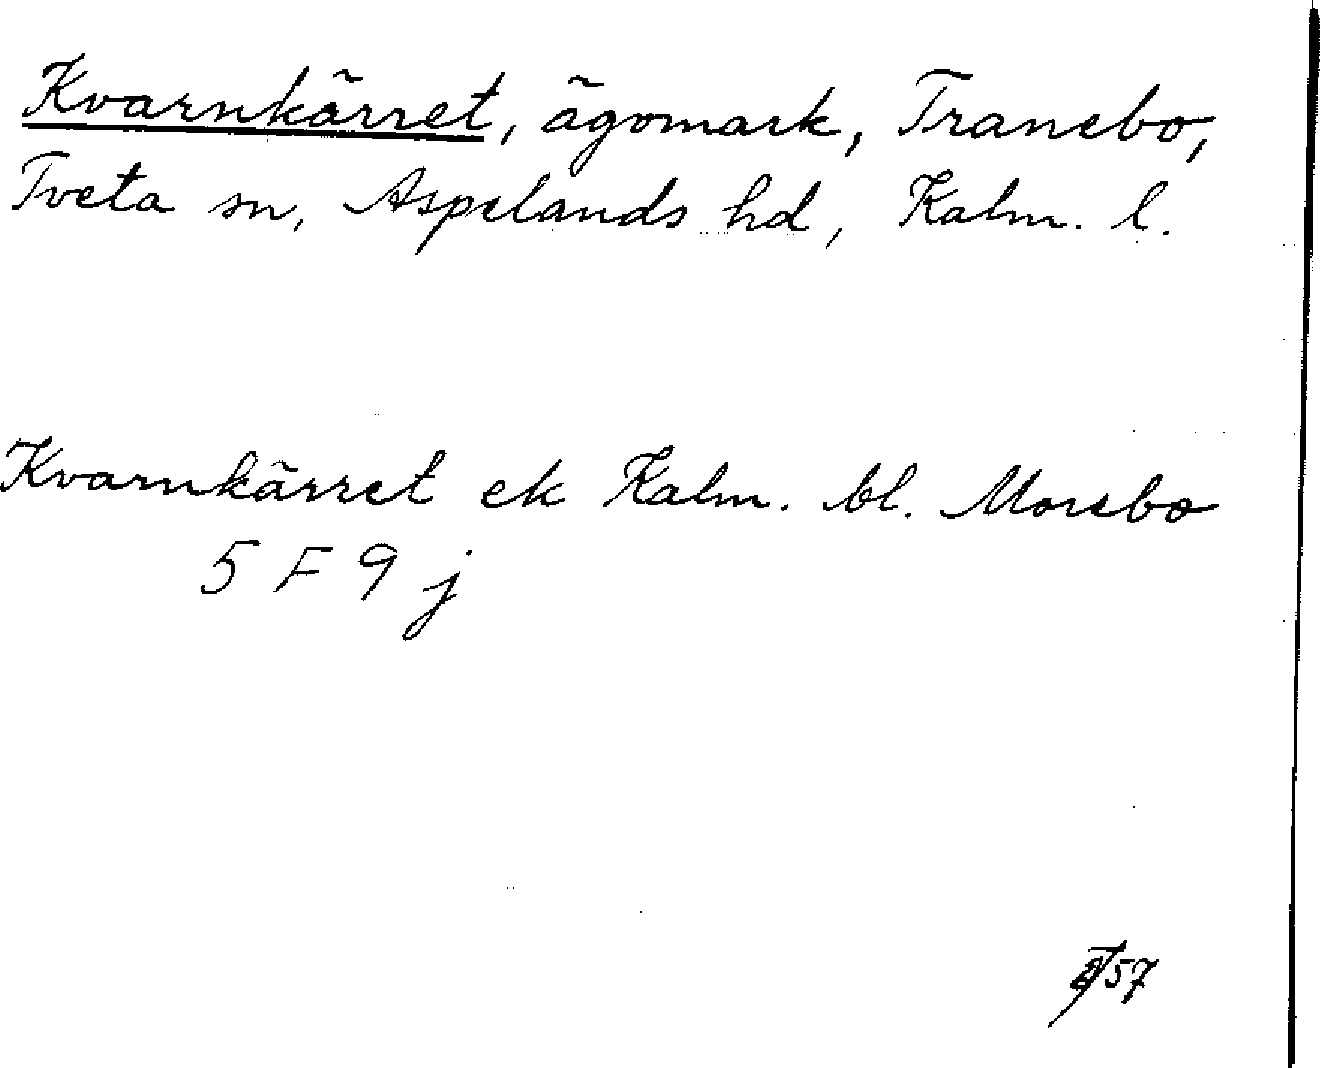 Kvarnkärret, ägomark, Tranebo,
Tveta sn, Aspelands hd, Kalm. l.
Kvarnkärret ek Kalm. bl. Morebo
5 F 9 j
57